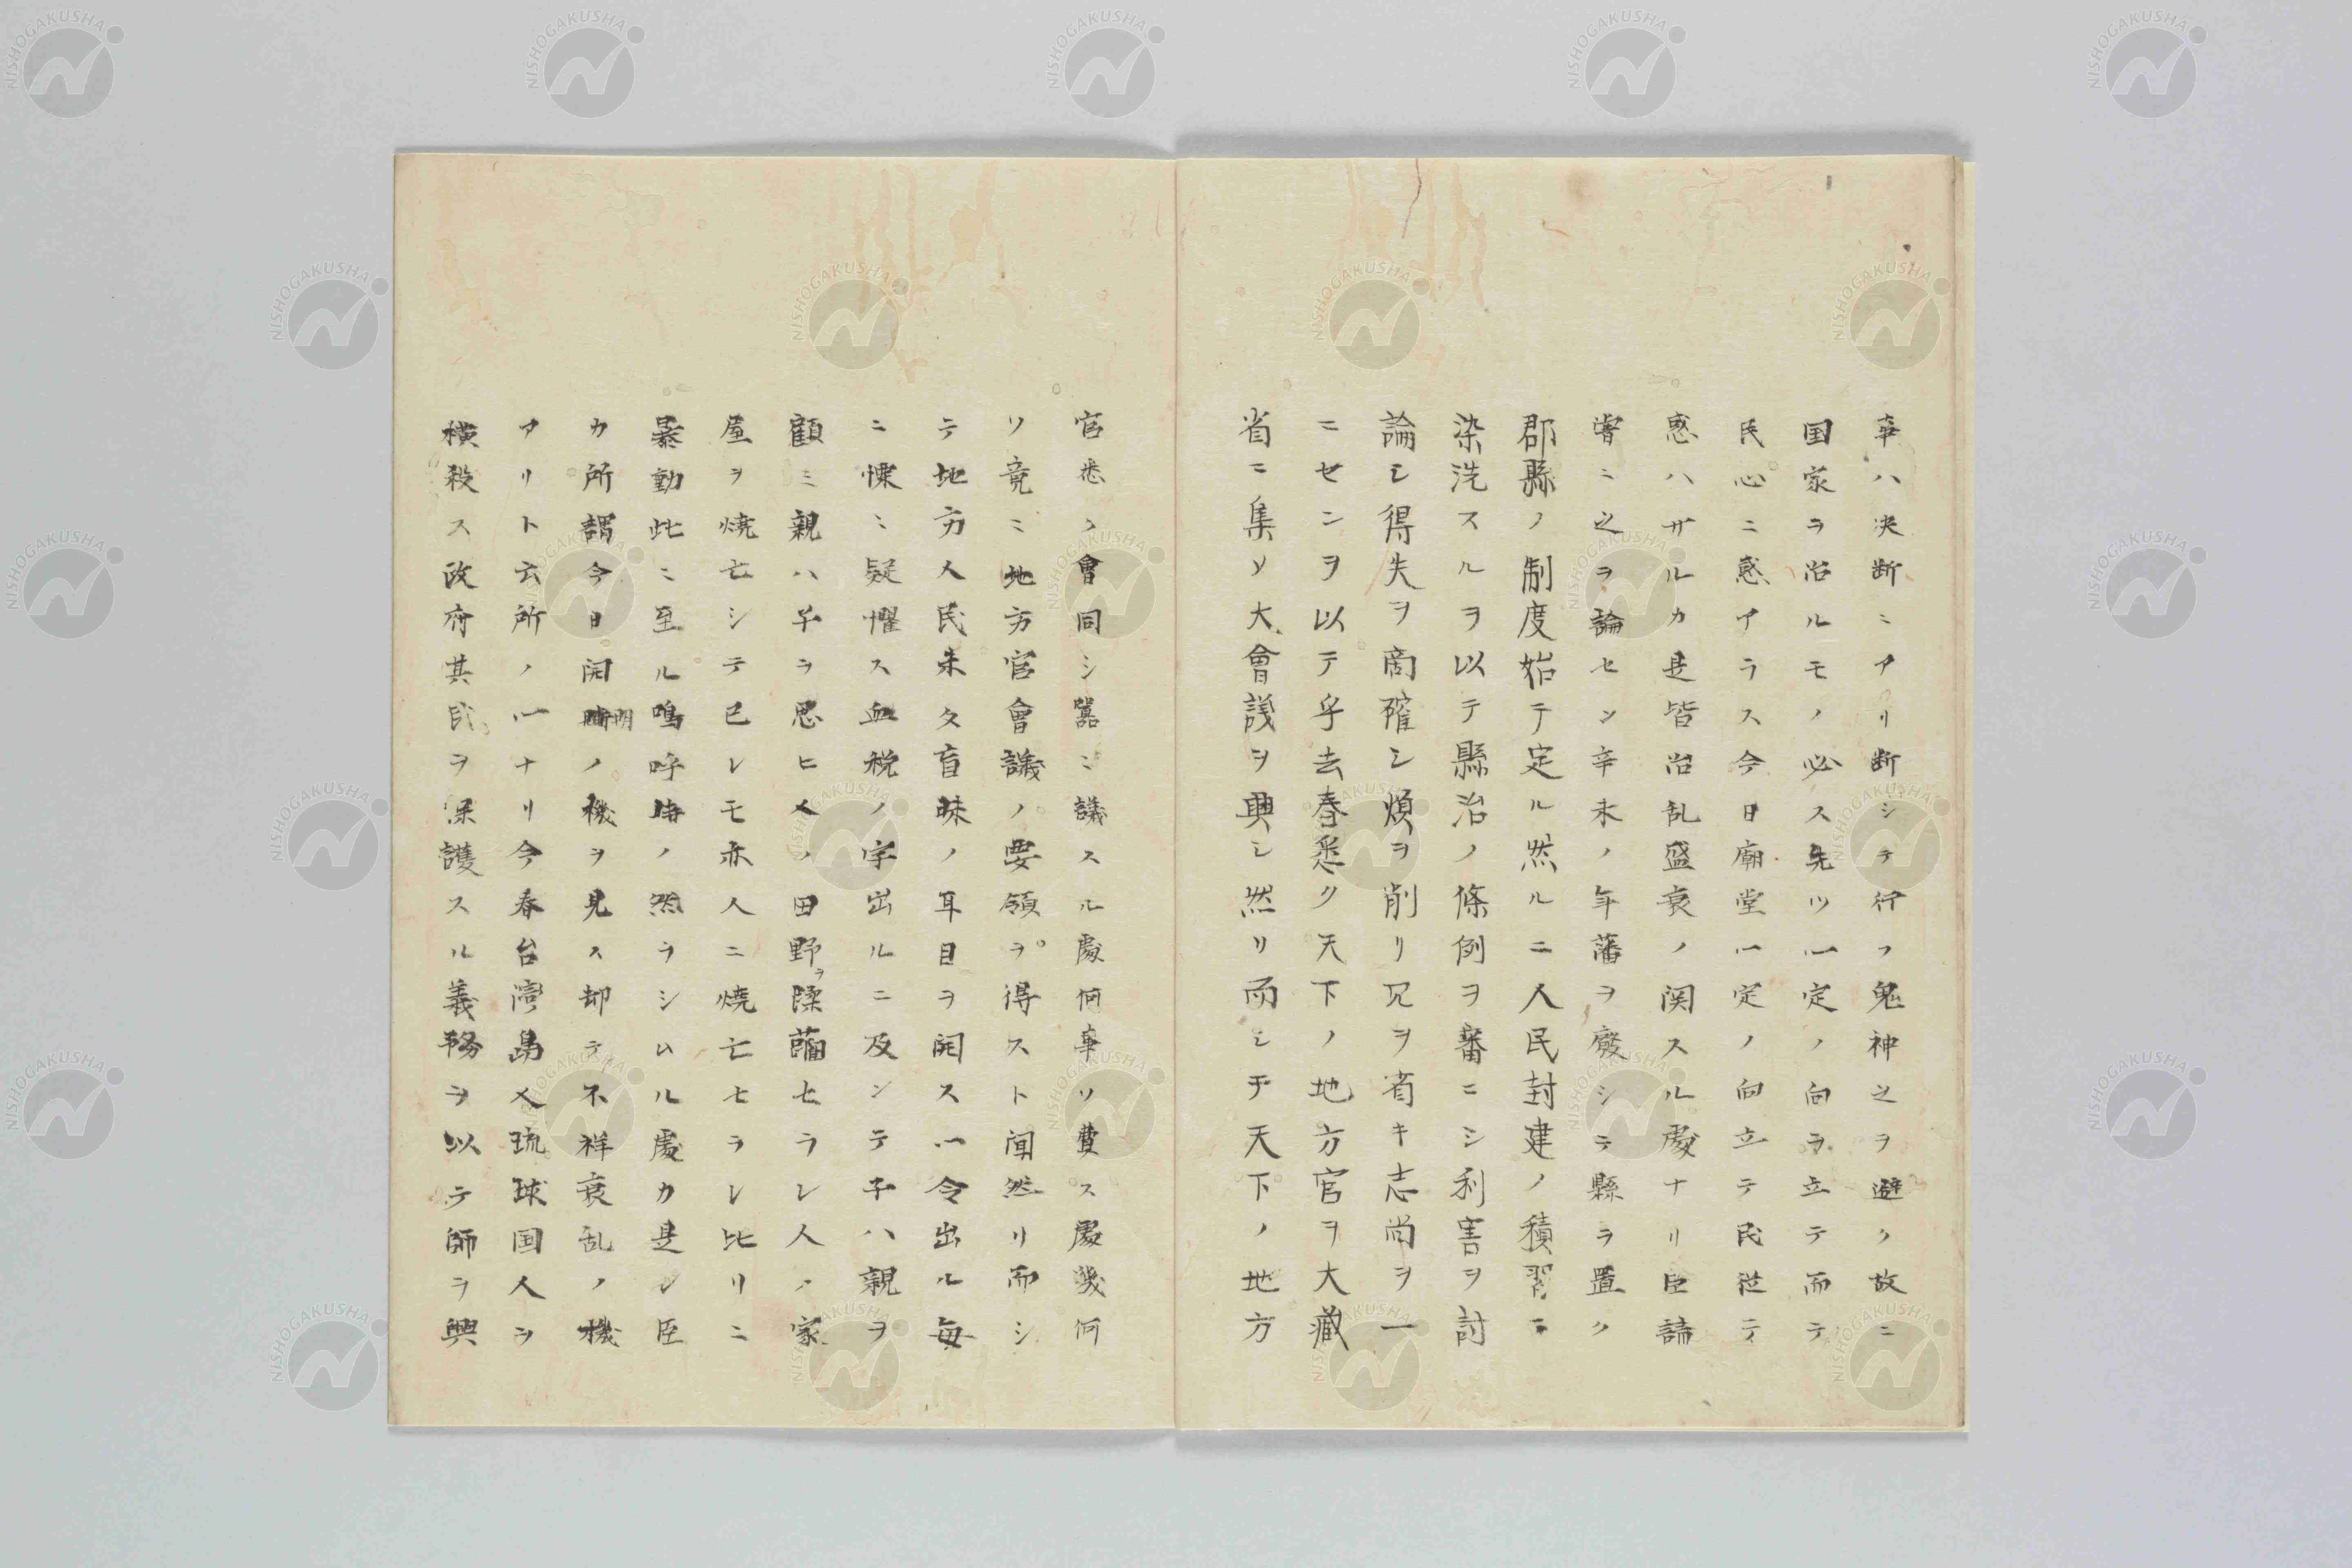 事ハ决断ニアリ断シテ行フ鬼神之ヲ避ク故ニ
国家ヲ治ルモノ必ス先ツ一定ノ向ヲ立テ而テ
民心ニ惑アラス今日廟堂一定ノ向立テ民従テ
惑ハサルカ是皆治乱盛衰ノ関スル處ナリ臣請
嘗ニ之ヲ論セン辛未ノ年藩ヲ廢シテ縣ヲ置ク
郡縣ノ制度始テ定ル然ルニ人民封建ノ積習ニ
染洗スルヲ以テ縣治ノ條例ヲ審ニシ利害ヲ討
論シ得失ヲ商確シ煩ヲ削リ冗ヲ省キ志尚ヲ一
ニセンヲ以テ乎去春悉ク天下ノ地方官ヲ大藏
省ニ集メ大會議ヲ興シ然リ而シテ天下ノ地方
官悉ク會同シ囂ニ議スル處何事ソ費ス處幾何
ソ竟ニ地方官會議ノ要領ヲ得スト聞然リ而シ
テ地方人民未タ盲昧ノ耳目ヲ開ス一令出ル毎
ニ慄ミ疑懼ス血税ノ字出ルニ及ンテ子ハ親ヲ
顧ミ親ハ子ヲ思ヒ人ノ田野ヲ蹂躪セラレ人ノ家
屋ヲ焼亡シテ已レモ亦人ニ焼亡セラレ比リニ
暴動此ニ至ル嗚呼誰ノ然ラシムル處カ是レ臣
カ所謂今日開明ノ機ヲ見ス却テ不祥衰乱ノ機
アリト云所ノ一ナリ今春台湾島人琉球国人ヲ
横殺ス政府其民ヲ保護スル義務ヲ以テ師ヲ興
NISHOGAKUSHA